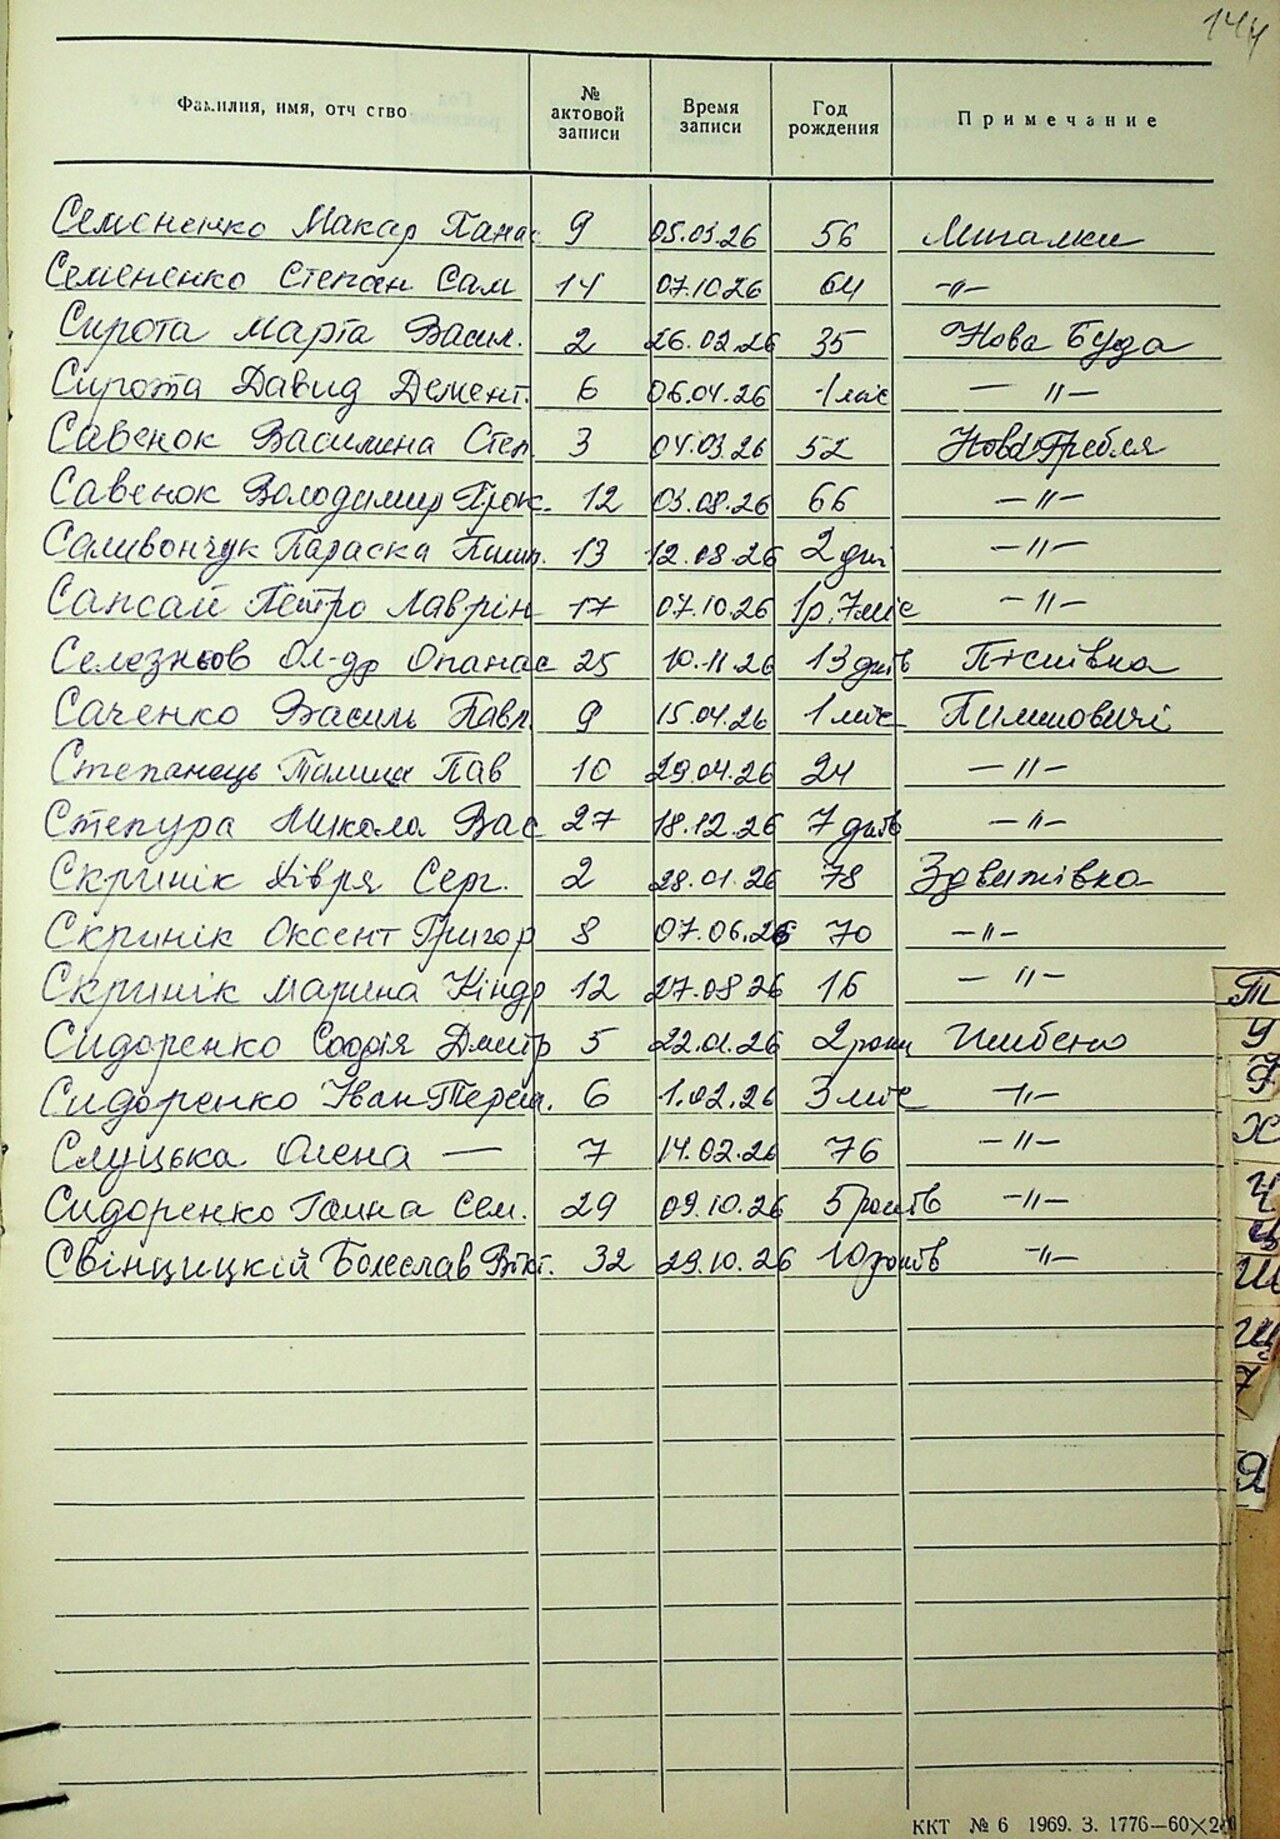 144
Фамилия, имя, отчество № актовой записи Время записи Год рождения Примечание
Семененко Макар Панас 9 05.03.26 56 Мигалки
Семененко Степан Сам 14 07.10.26 64 -"-
Сирота Марта Васил. 2 26.02.26 35 Нова Буда
Сирота Давид Демент. 6 06.04.26 1 міс -"-
Савенок Василина Степ. 3 04.03.26 52 Нова Гребля
Савенок Володимир Прок. 12 03.08.26 66 -"-
Саливончук Параска Пилип. 13 12.08.26 2 дні -"-
Сапсай Петро Лаврін 17 07.10.26 1р. 7міс -"-
Селезньов Ол-др Опанас 25 10.11.26 13 днів Пісківка
Саченко Василь Павл. 9 15.04.26 1 міс Пилиповичі
Степанець Пав 10 29.04.26 24 -"-
Степура Микола Вас 27 18.12.26 7 днів -"-
Скриник Хівря Серг. 2 28.01.26 78 Здвижівка
Скриник Оксент Григор 8 07.06.26 70 -"-
Скриник Марина Кіндр 12 27.08.26 16 -"-
Сидоренко Софія Дмитр 5 22.01.26 2 роки Шибене
Сидоренко Іван Тереш. 6 1.02.26 3 міс -"-
Слуцька Олена — 7 14.02.26 76 -"-
Сидоренко Ганна Сем. 29 09.10.26 5 років -"-
Свінцицкій Болеслав Вікт. 32 29.10.26 10 років -"-
Т
У
Ф
Х
Ч
Ш
Щ
Я
ККТ № 6 1969. З. 1776—60×2